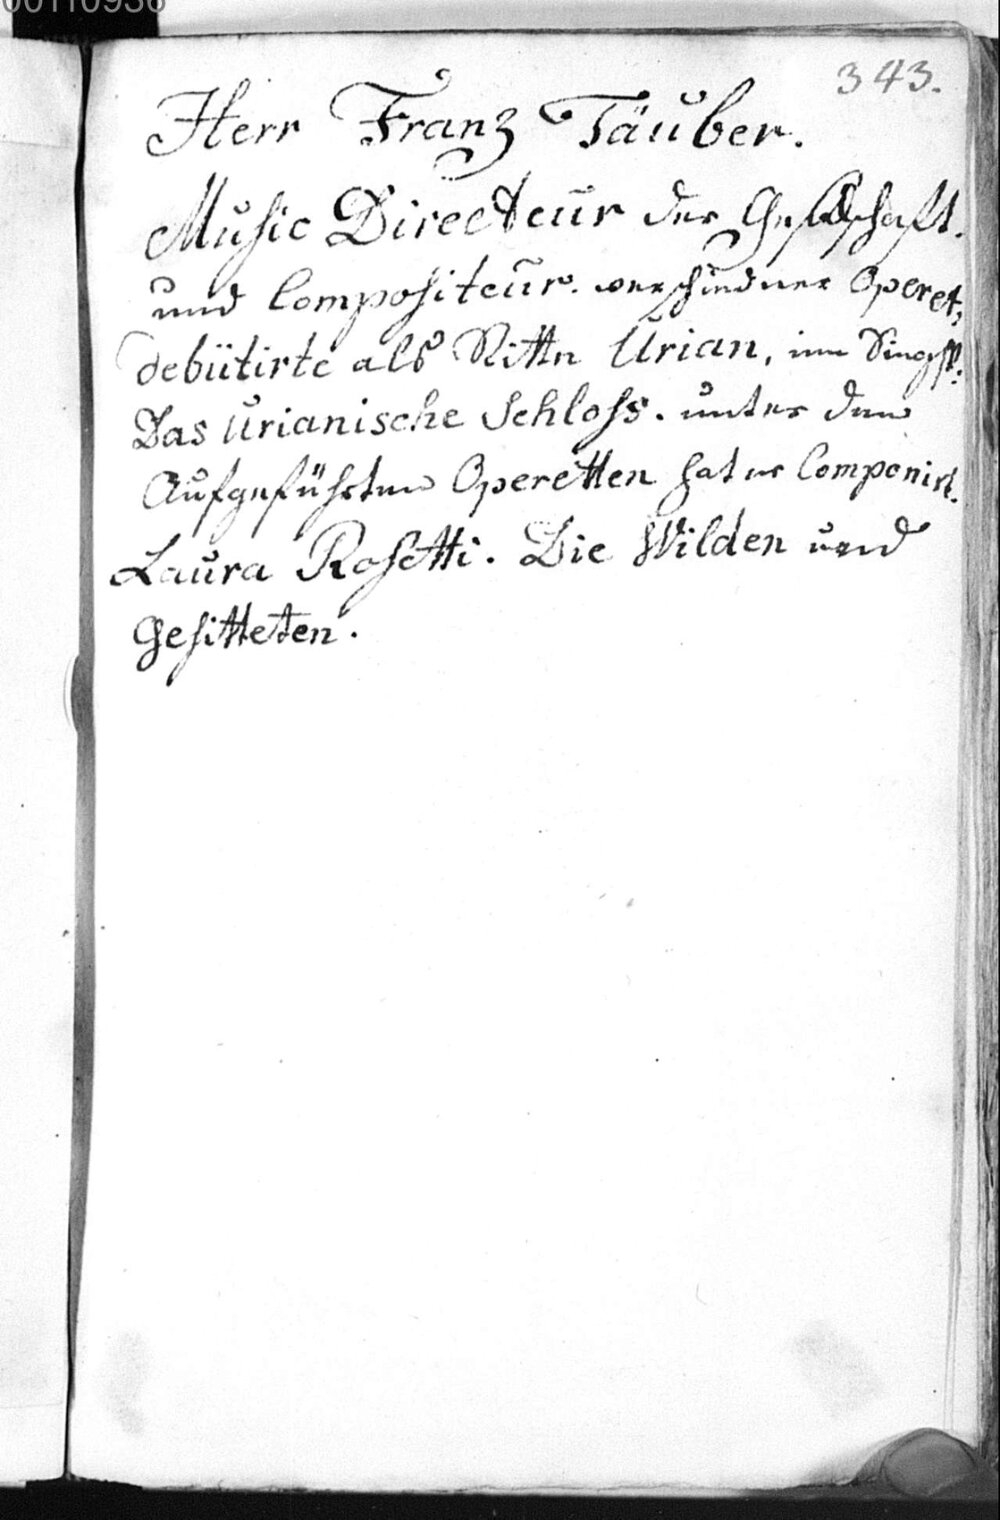 00110936
343.
Herr Franz Täuber.
Music Directeur der Gesellschaft.
und Compositeur. verschiedner Operet,
debütirte als Rittr Urian, im Singsp:
Das Urianische Schloss. unter den
Aufgeführten Operetten hat er Componirt.
Laura Rosetti. Die Wilden und
Gesitteten.